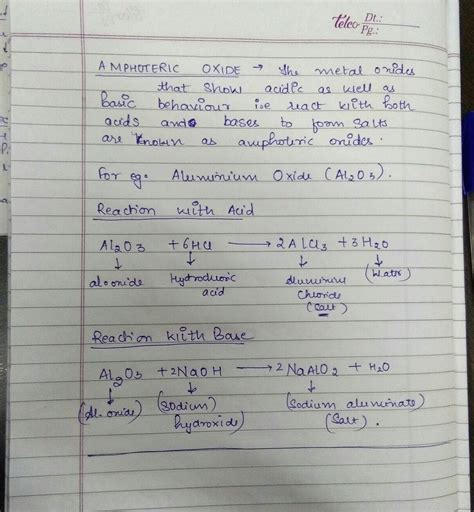 teleo Dt.:
Pg.:
AMPHOTERIC OXIDE → The metal oxides
that show acidic as well as
basic behaviour i.e react with both
acids and bases to form salts
are known as amphoteric oxides.
For eg. Aluminium Oxide (Al2O3).
Reaction with Acid
Al2O3 + 6HCl → 2AlCl3 + 3H2O
↓ ↓ ↓ ↓
al. oxide Hydrochloric Aluminium (Water)
acid Chloride
(Salt)
Reaction with Base
Al2O3 + 2NaOH → 2NaAlO2 + H2O
↓ ↓ ↓
(Al. oxide) (Sodium) (Sodium aluminate)
hydroxide) (Salt).